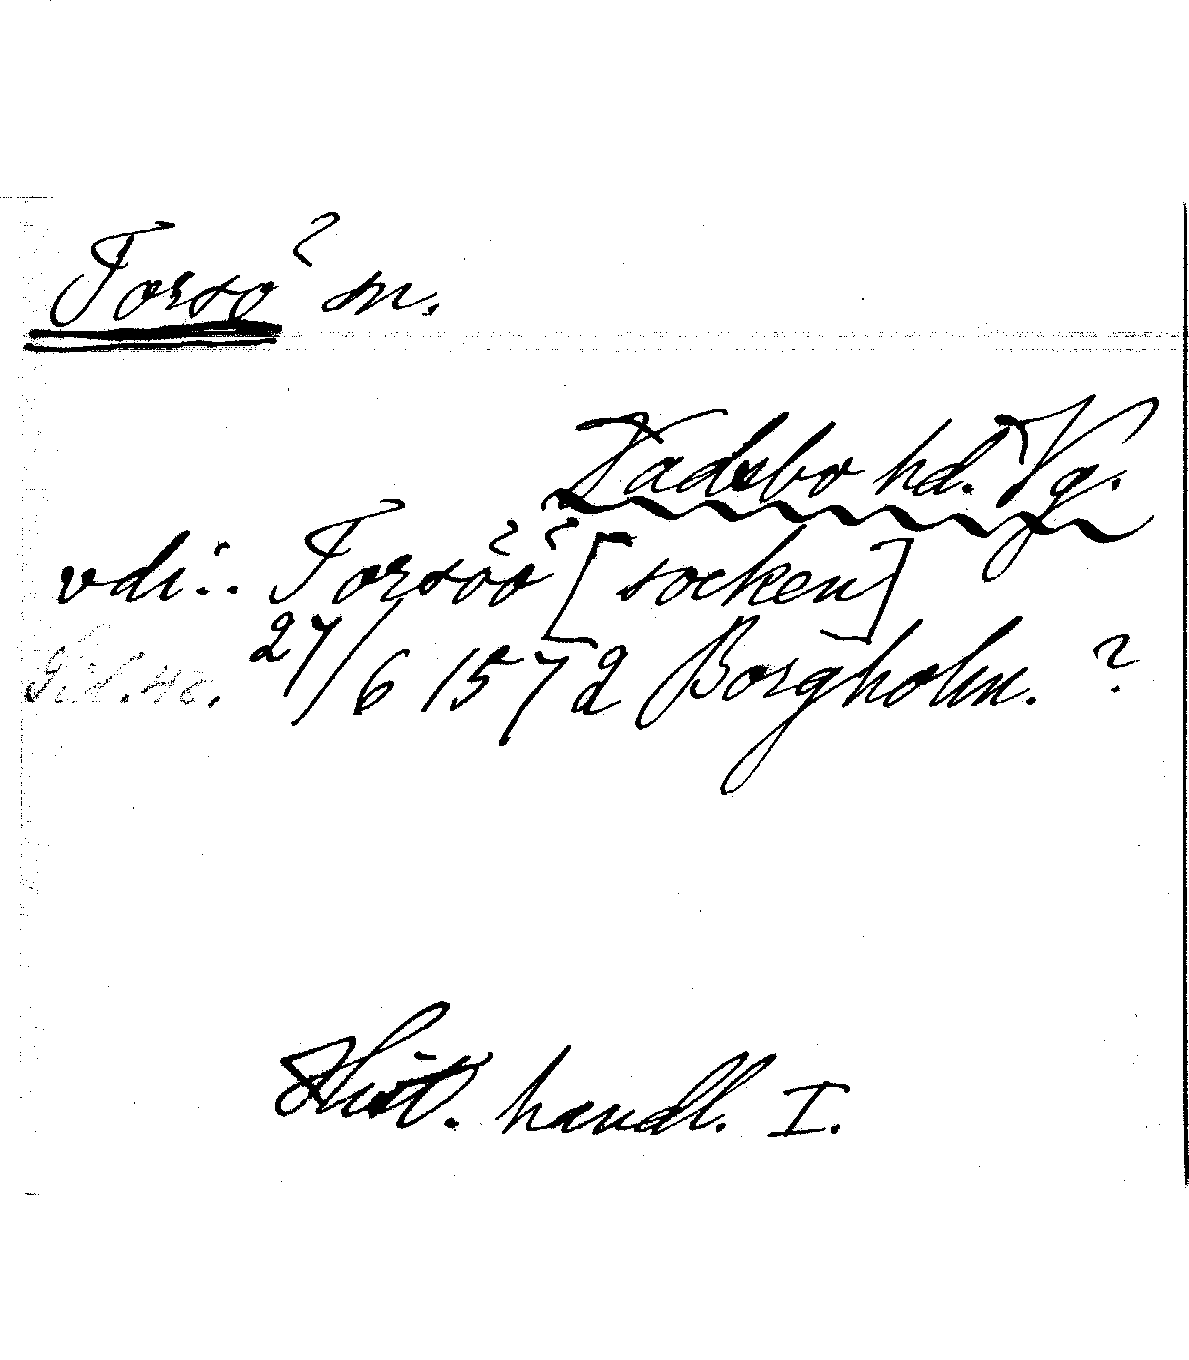 Torsö sn.
Kadsbo hd. Vg.
vdi.. Torsöö [socken]
27/6 1572 Borgholm. ?
Hist. handl. I.